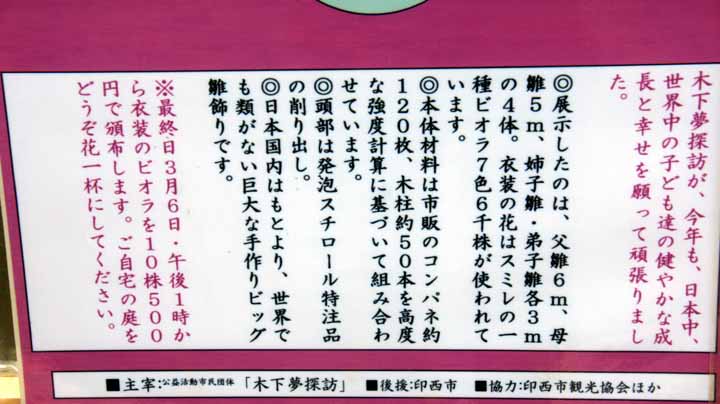 木下夢探訪が、今年も、日本中、
世界中の子ども達の健やかな成
長と幸せを願って頑張りまし
た。
◎展示したのは、父雛6m、母
雛5m、姉子雛・弟子雛各3m
の4体。衣装の花はスミレの一
種ビオラ7色6千株が使われて
います。
◎本体材料は市販のコンパネ約
120枚、木柱約50本を高度
な強度計算に基づいて組み合わ
せています。
◎頭部は発泡スチロール特注品
の削り出し。
◎日本国内はもとより、世界で
も類がない巨大な手作りビッグ
雛飾りです。
※最終日3月6日・午後1時か
ら衣装のビオラを10株500
円で頒布します。ご自宅の庭を
どうぞ花一杯にしてください。
■主宰:公益活動市民団体「木下夢探訪」 ■後援:印西市 ■協力:印西市観光協会ほか